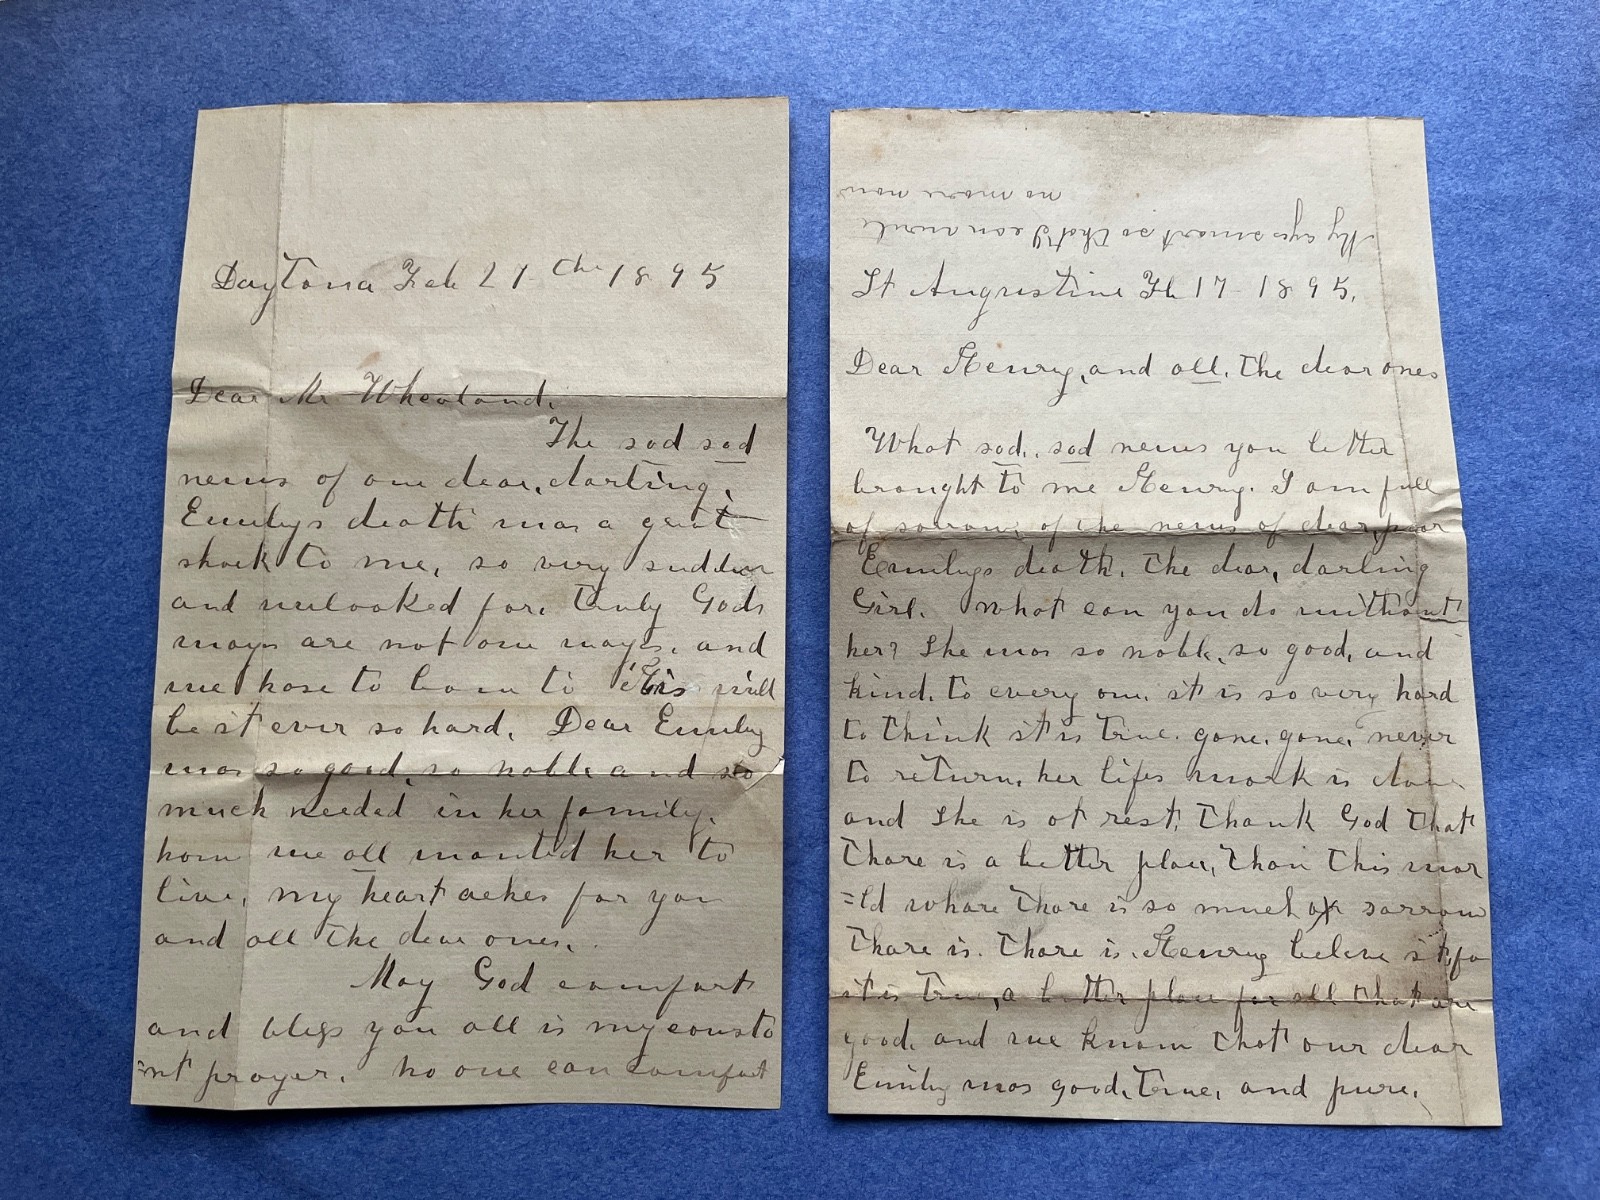 Daytona Feb 27th 1895
Dear Mr Wheatland.
The sad sad
news of our dear, darling,
Emilys death was a great
shock to me, so very sudden
and unlooked for, truly Gods
ways are not our ways, and
we have to bow to His will
be it ever so hard. Dear Emily
was so good, so noble and so
much needed in her family.
how we all wanted her to
live, my heart aches for you
and all the dear ones.
May God comfort
and bless you all is my consta
=nt prayer. no one can comfort
My eyes smart so that I can write
no more now
St Augustine Fb 17 1895.
Dear Henry, and all, the dear ones
What sad, sad news you letter
brought to me Henry. I am full
of sorrow, of the news of dear, poor
Emilys death, the dear, darling
Girl. what can you do without
her? She was so noble, so good, and
kind, to every one, it is so very hard
to think it is true. gone, gone, never
to return, her lifes work is done
and She is at rest, thank God that
thare is a better place, than this wor
=ld whare thare is so much of sorrow
thare is. thare is. Henry beleve it, fo
it is true, a better place for all that are
good, and we know that our dear
Emily was good, true, and pure.